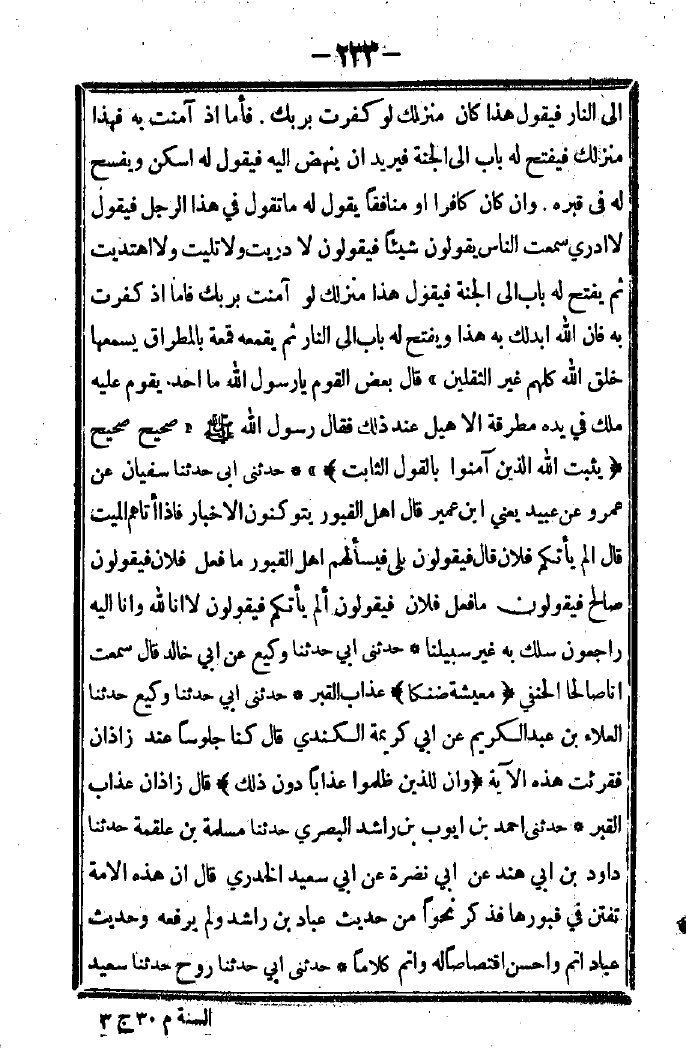 — ٢٣٣ —
الى النار فيقول هذا كان منزلك لو كفرت بربك . فأما اذ آمنت به فهذا
منزلك فيفتح له باب الى الجنة فيريد ان ينهض اليه فيقول له اسكن ويفسح
له فى قبره . وان كان كافرا او منافقاً يقول له ماتقول في هذا الرجل فيقول
لاادري سمعت الناس يقولون شيئاً فيقولون لا دريت ولا تليت ولا اهتديت
ثم يفتح له باب الى الجنة فيقول هذا منزلك لو آمنت بربك فاما اذ كفرت
به فان الله ابدلك به هذا ويفتح له باب الى النار ثم يقمعه قمعة بالمطراق يسمعها
خلق الله كلهم غير الثقلين » قال بعض القوم يارسول الله ما احد يقوم عليه
ملك في يده مطرقة الا هيل عند ذلك فقال رسول الله ﷺ « صحيح صحيح
﴿ يثبت الله الذين آمنوا بالقول الثابت ﴾ » * حدثنى ابى حدثنا سفيان عن
عمرو عن عبيد يعني ابن عمير قال اهل القبور يتوكفون الاخبار فاذا أتاهم الميت
قال الم يأتكم فلان قال فيقولون بلى فيسألهم اهل القبور ما فعل فلان فيقولون
صالح فيقولون مافعل فلان فيقولون ألم يأتكم فيقولون لا انا لله وانا اليه
راجعون سلك به غير سبيلنا * حدثنى ابي حدثنا وكيع عن ابي خالد قال سمعت
اناصالحا الحنفي ﴿ معيشة ضنكا ﴾ عذاب القبر * حدثنى ابي حدثنا وكيع حدثنا
العلاء بن عبد الكريم عن ابي كريمة الكندي قال كنا جلوساً عند زاذان
فقرئت هذه الآية ﴿وان للذين ظلموا عذاباً دون ذلك ﴾ قال زاذان عذاب
القبر * حدثنى احمد بن ايوب بن راشد البصري حدثنا مسلمة بن علقمة حدثنا
داود بن ابي هند عن ابي نضرة عن ابي سعيد الخدري قال ان هذه الامة
تفتن في قبورها فذكر نحواً من حديث عباد بن راشد ولم يرفعه وحديث
عباد اتم واحسن اقتصاصاً له واتم كلاماً * حدثنى ابي حدثنا روح حدثنا سعيد
السنة م ٣٠ ج ٣